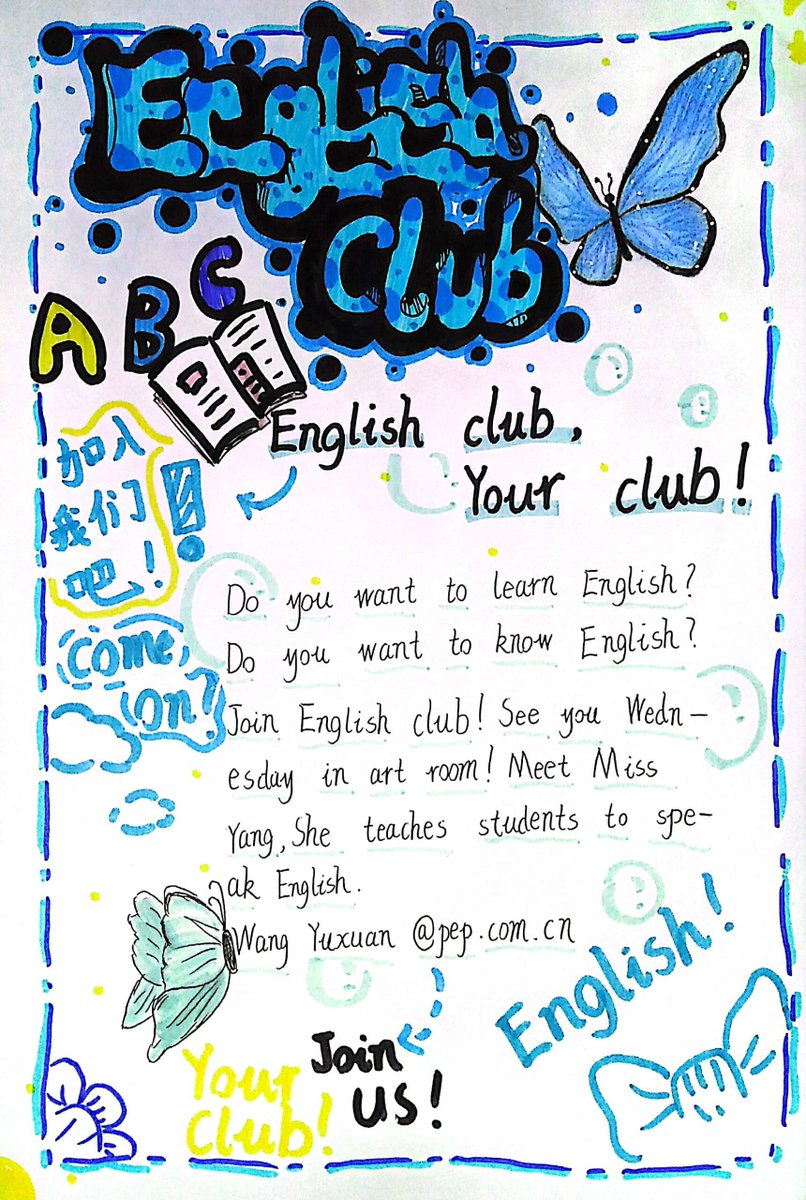 English
Club
A B C
English club,
Your club!
加入
我们
吧！
Come,
on?
Do you want to learn English?
Do you want to know English?
Join English club! See you Wedn-
esday in art room! Meet Miss
Yang, She teaches students to spe-
ak English.
Wang Yuxuan @pep.com.cn
English!
Join
us!
Your
Club!